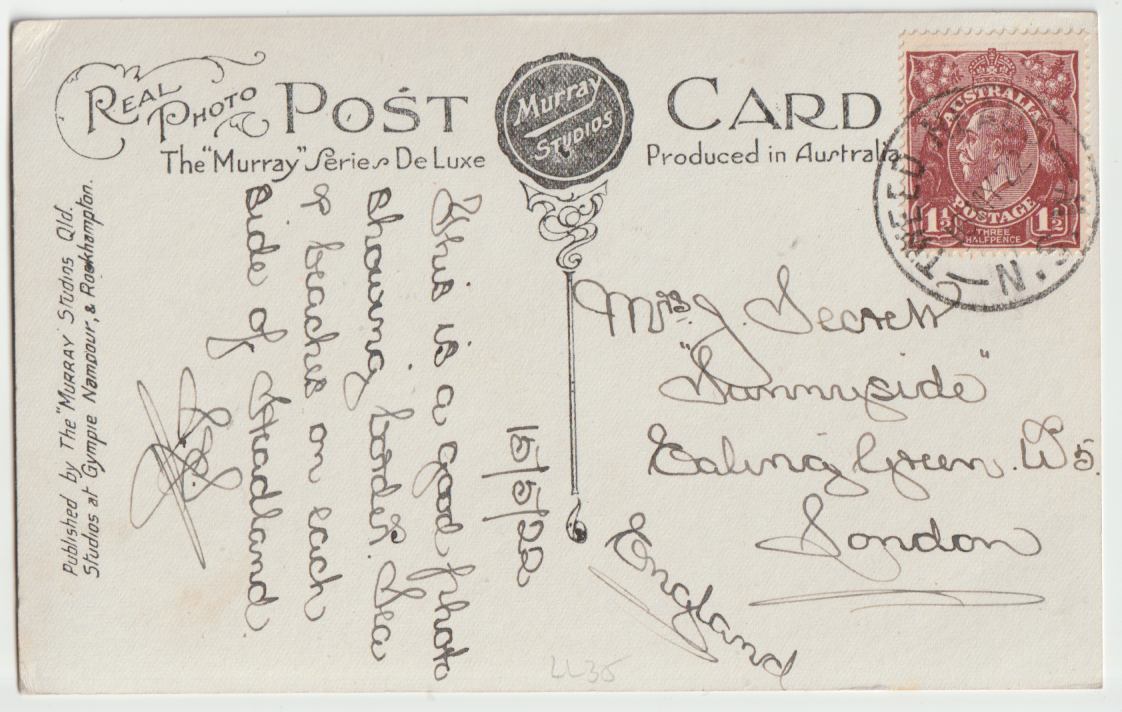 REAL PHOTO POST CARD
Murray STUDIOS
The "Murray" Series De Luxe
Produced in Australia
Published by The "MURRAY" Studios Qld.
Studios at Gympie Nambour, & Rockhampton.
15/5/22
This is a good photo
showing border. Sea
& beaches on each
side of Headland.
AUSTRALIA
POSTAGE
1½ 1½
THREE
HALFPENCE
TWEED
N.S.W
Mrs. J. Secrett
"Sunnyside"
Ealing Green. W5.
London
England
LL35